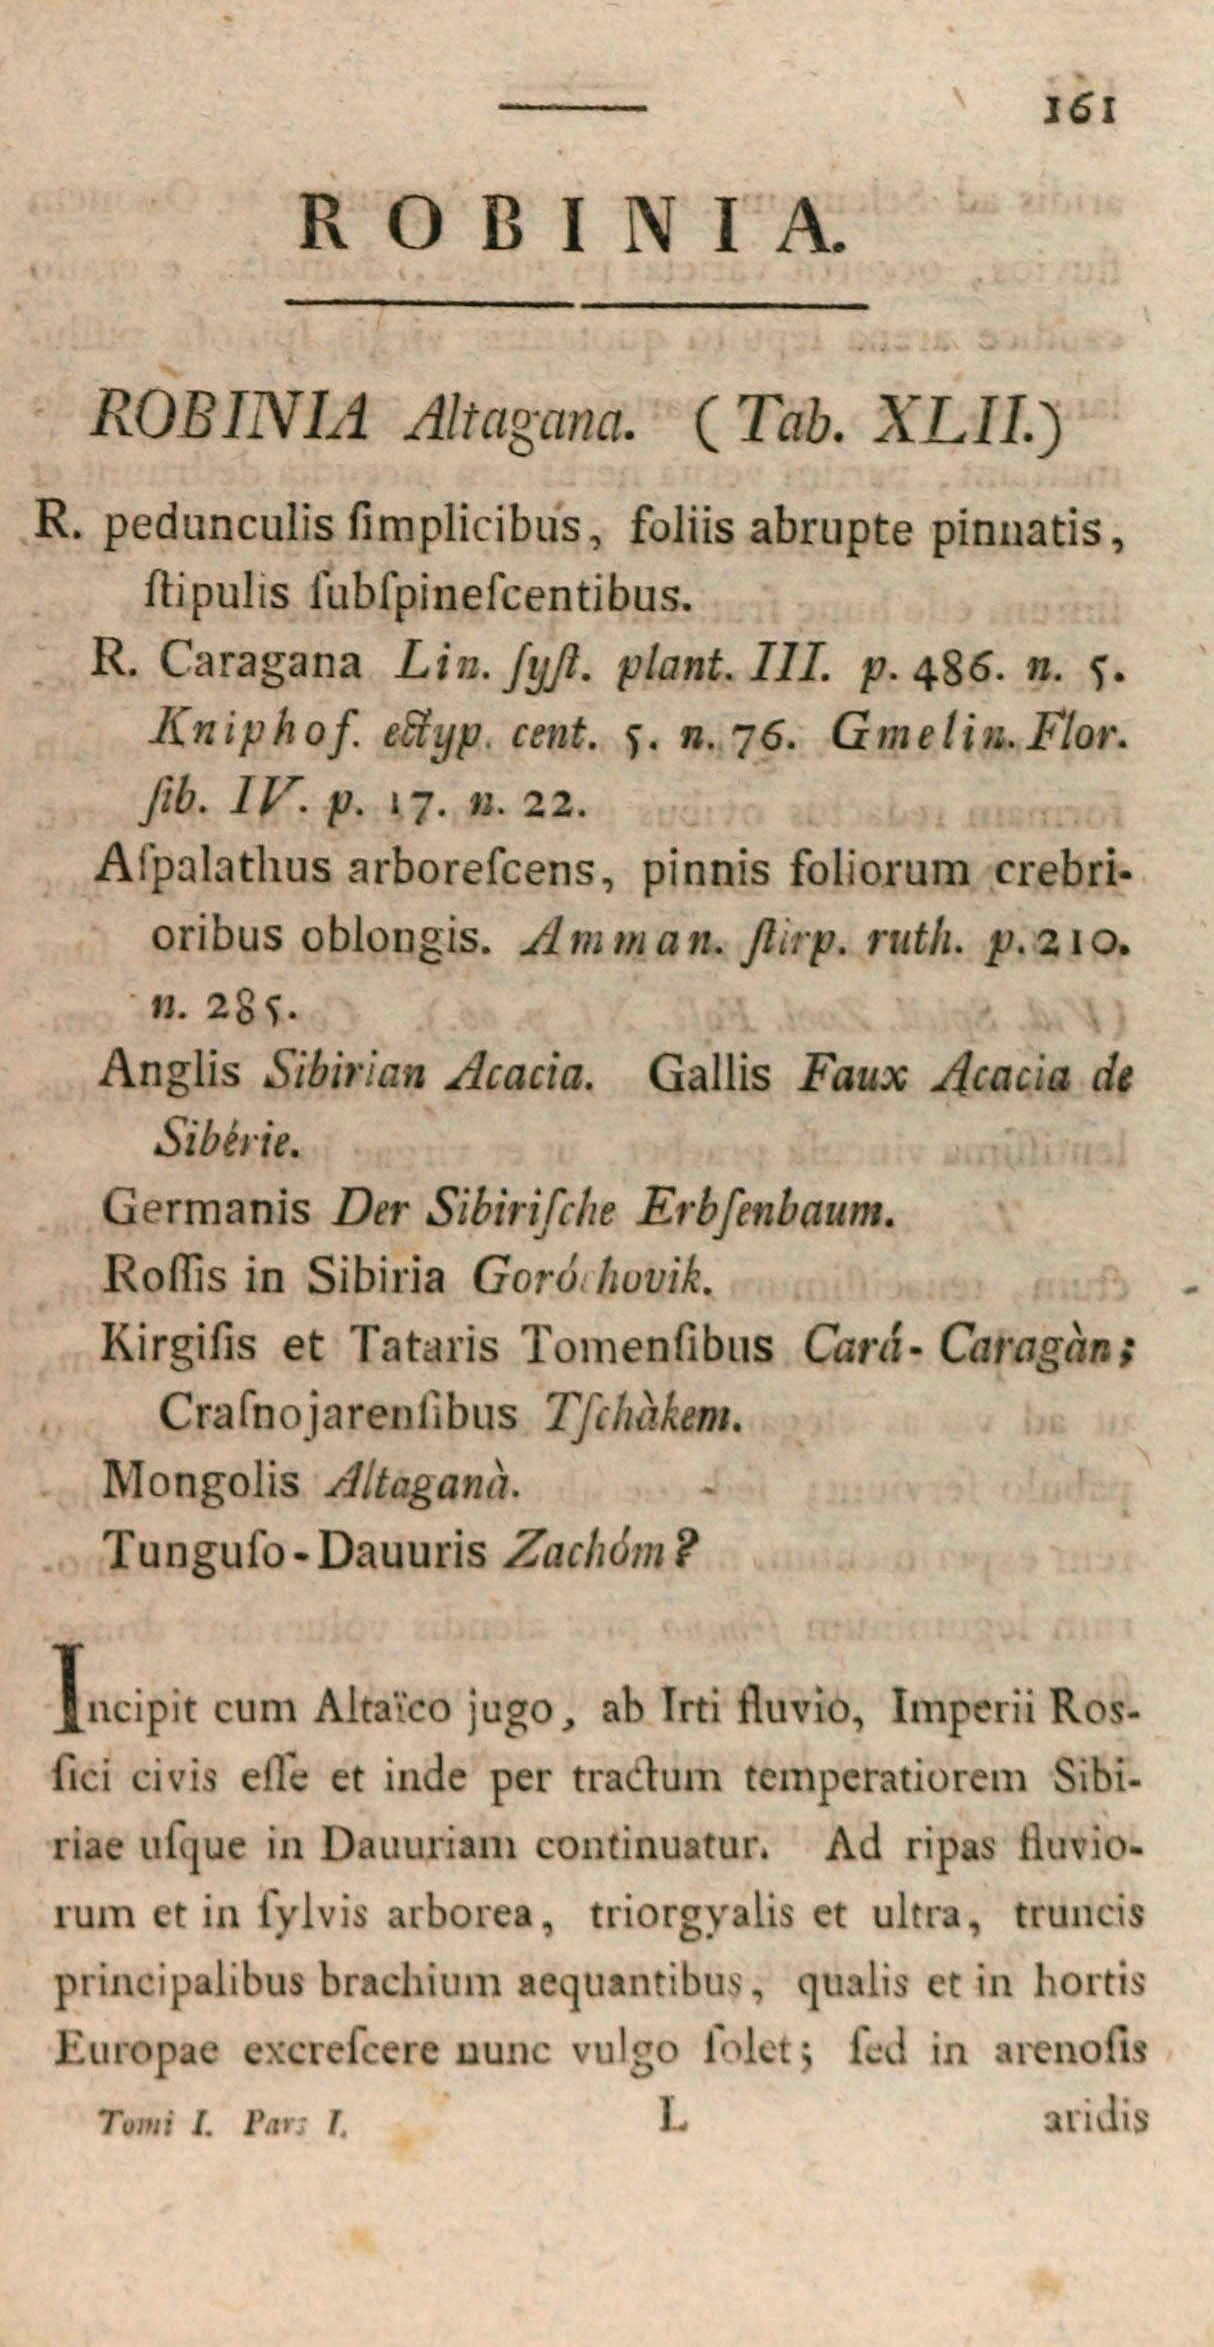 161
ROBINIA.
ROBINIA Altagana. (Tab. XLII.)
R. pedunculis ſimplicibus, foliis abrupte pinnatis,
ſtipulis ſubſpineſcentibus.
R. Caragana Lin. ſyſt. plant. III. p. 486. n. 5.
Kniphof. ectyp. cent. 5. n. 76. Gmelin. Flor.
ſib. IV. p. 17. n. 22.
Aſpalathus arboreſcens, pinnis foliorum crebri-
oribus oblongis. Amman. ſtirp. ruth. p. 210.
n. 285.
Anglis Sibirian Acacia. Gallis Faux Acacia de
Sibérie.
Germanis Der Sibiriſche Erbſenbaum.
Roſſis in Sibiria Goróchovik.
Kirgiſis et Tataris Tomenſibus Cará-Caragàn;
Craſnojarenſibus Tſchàkem.
Mongolis Altaganà.
Tunguſo-Dauuris Zachóm?
Incipit cum Altaïco jugo, ab Irti fluvio, Imperii Ros-
ſici civis eſſe et inde per tractum temperatiorem Sibi-
riae uſque in Dauuriam continuatur. Ad ripas fluvio-
rum et in ſylvis arborea, triorgyalis et ultra, truncis
principalibus brachium aequantibus, qualis et in hortis
Europae excreſcere nunc vulgo ſolet; ſed in arenoſis
Tomi I. Pars I. L aridis